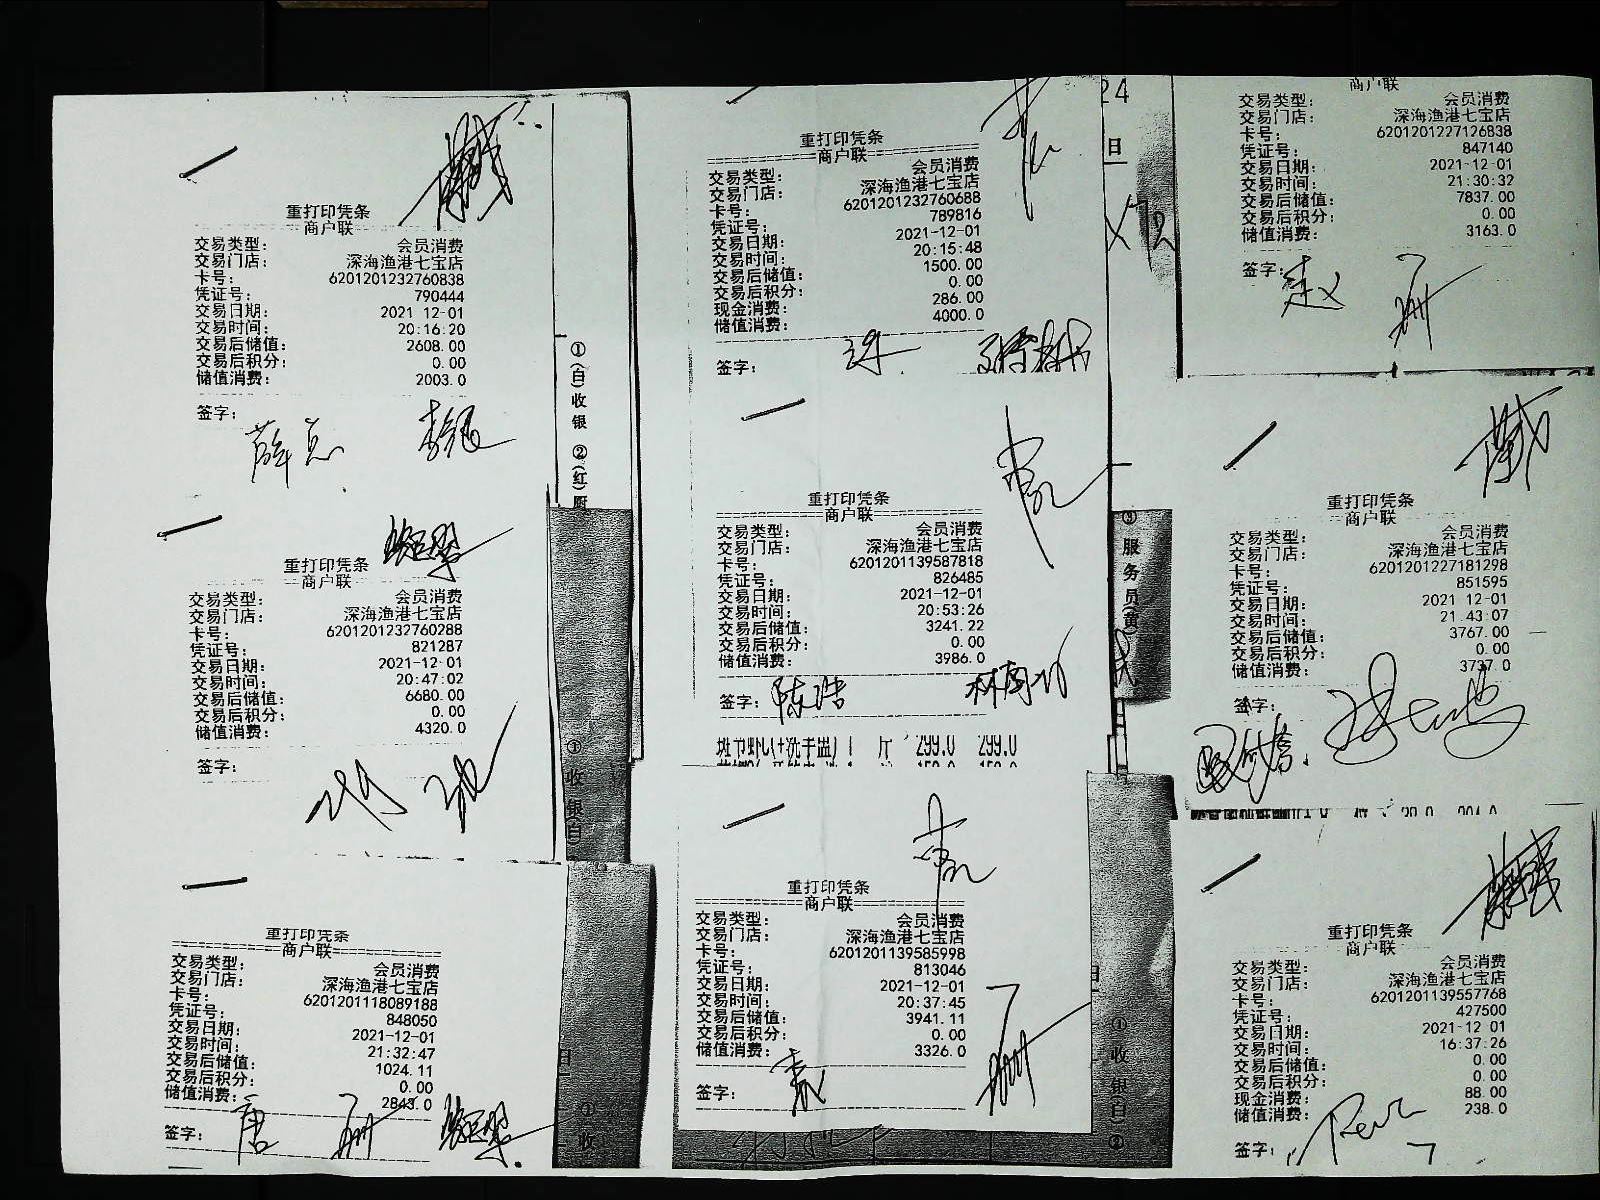 重打印凭条
商户联
交易类型: 会员消费
交易门店: 深海渔港七宝店
卡号: 6201201232760838
凭证号: 790444
交易日期: 2021 12-01
交易时间: 20:16:20
交易后储值: 2608.00
交易后积分: 0.00
储值消费: 2003.0
签字:
薛总
重打印凭条
商户联
交易类型: 会员消费
交易门店: 深海渔港七宝店
卡号: 6201201232760288
凭证号: 821287
交易日期: 2021-12-01
交易时间: 20:47:02
交易后储值: 6680.00
交易后积分: 0.00
储值消费: 4320.0
签字:
重打印凭条
商户联
交易类型: 会员消费
交易门店: 深海渔港七宝店
卡号: 6201201118089188
凭证号: 848050
交易日期: 2021-12-01
交易时间: 21:32:47
交易后储值: 1024.11
交易后积分: 0.00
储值消费: 2843.0
签字: 唐
①(白)收银 ②(红)厨
①收银(白)
①收
重打印凭条
商户联
交易类型: 会员消费
交易门店: 深海渔港七宝店
卡号: 6201201232760688
凭证号: 789816
交易日期: 2021-12-01
交易时间: 20:15:48
交易后储值: 1500.00
交易后积分: 0.00
现金消费: 286.00
储值消费: 4000.0
签字:
重打印凭条
商户联
交易类型: 会员消费
交易门店: 深海渔港七宝店
卡号: 6201201139587818
凭证号: 826485
交易日期: 2021-12-01
交易时间: 20:53:26
交易后储值: 3241.22
交易后积分: 0.00
储值消费: 3986.0
签字: 陈浩
斑节虾(+洗手盅) 1 斤 299.0 299.0
重打印凭条
商户联
交易类型: 会员消费
交易门店: 深海渔港七宝店
卡号: 6201201139585998
凭证号: 813046
交易日期: 2021-12-01
交易时间: 20:37:45
交易后储值: 3941.11
交易后积分: 0.00
储值消费: 3326.0
签字: 袁
24
日
③服务员(黄)
日
①收银(白)②
商户联
交易类型: 会员消费
交易门店: 深海渔港七宝店
卡号: 6201201227126838
凭证号: 847140
交易日期: 2021-12-01
交易时间: 21:30:32
交易后储值: 7837.00
交易后积分: 0.00
储值消费: 3163.0
签字: 赵
重打印凭条
商户联
交易类型: 会员消费
交易门店: 深海渔港七宝店
卡号: 6201201227181298
凭证号: 851595
交易日期: 2021 12-01
交易时间: 21.43:07
交易后储值: 3767.00
交易后积分: 0.00
储值消费: 3737.0
签字:
重打印凭条
商户联
交易类型: 会员消费
交易门店: 深海渔港七宝店
卡号: 6201201139557768
凭证号: 427500
交易日期: 2021-12 01
交易时间: 16:37:26
交易后储值: 0.00
交易后积分: 0.00
现金消费: 88.00
储值消费: 238.0
签字: